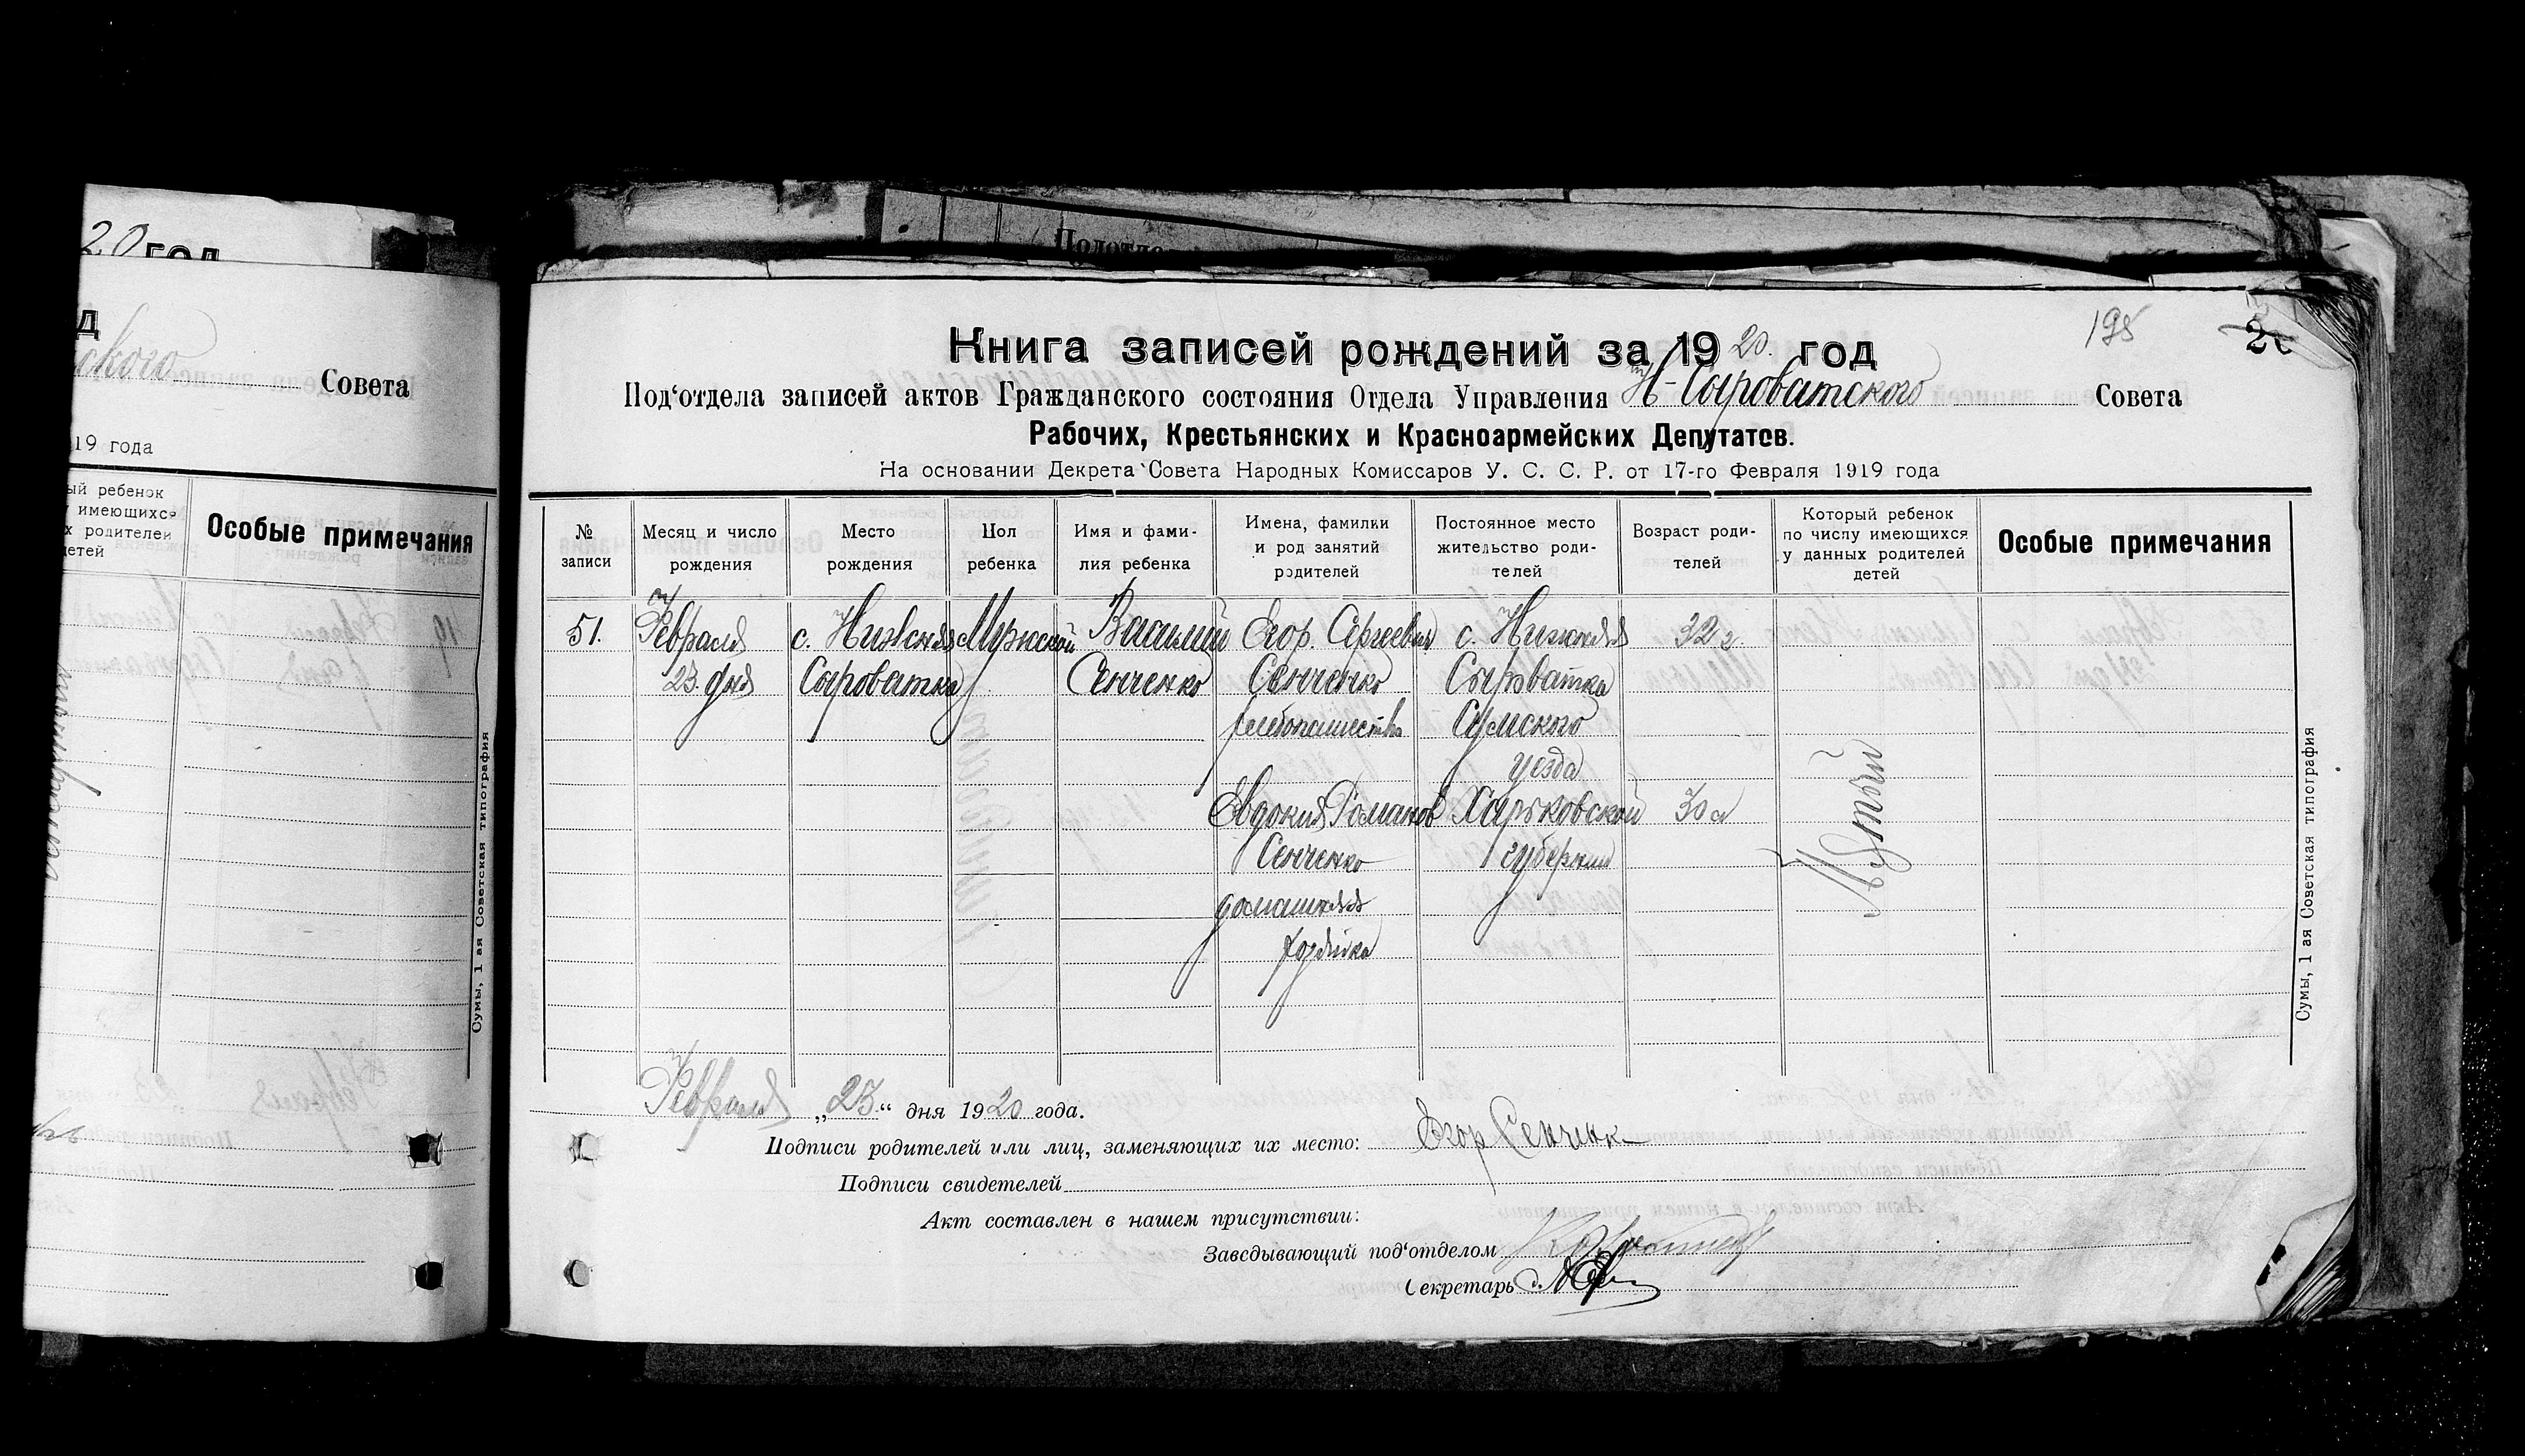 20 год
д
ского Совета
19 года
ый ребенок
имеющихся
х родителей
детей
Особые примечания
Сумы, 1 ая Советская типография
Подотде
195
Книга записей рождений за 1920. год
Под‘отдела записей актов Гражданского состояния Отдела Управления Н-Сыроватского Совета
Рабочих, Крестьянских и Красноармейских Депутатов.
На основании Декрета Совета Народных Комиссаров У. С. С. Р. от 17-го Февраля 1919 года
№ записи
Месяц и число рождения
Место рождения
Пол ребенка
Имя и фами-
лия ребенка
Имена, фамилки
и род занятий
родителей
Постоянное место
жительство роди-
телей
Возраст роди-
телей
Который ребенок
по числу имеющихся
у данных родителей
детей
Особые примечания
51. Февраля с. Нижняя Мужской Василий Егор. Сергеевич с. Нижняя 32 г.
23 дня Сыроватка Сенченко Сенченко Сыроватка
хлебопашество Сумского
уезда
Евдокия Романов Харьковской 30 л
Сенченко губернии
домашняя
хозяйка
Пятый
Сумы, 1 ая Советская типография
Февраля „23“ дня 1920 года.
Подписи родителей или лиц, заменяющих их место: Егор Сенченк
Подписи свидетелей
Акт составлен в нашем присутствии:
Заведывающий под‘отделом
Секретарь